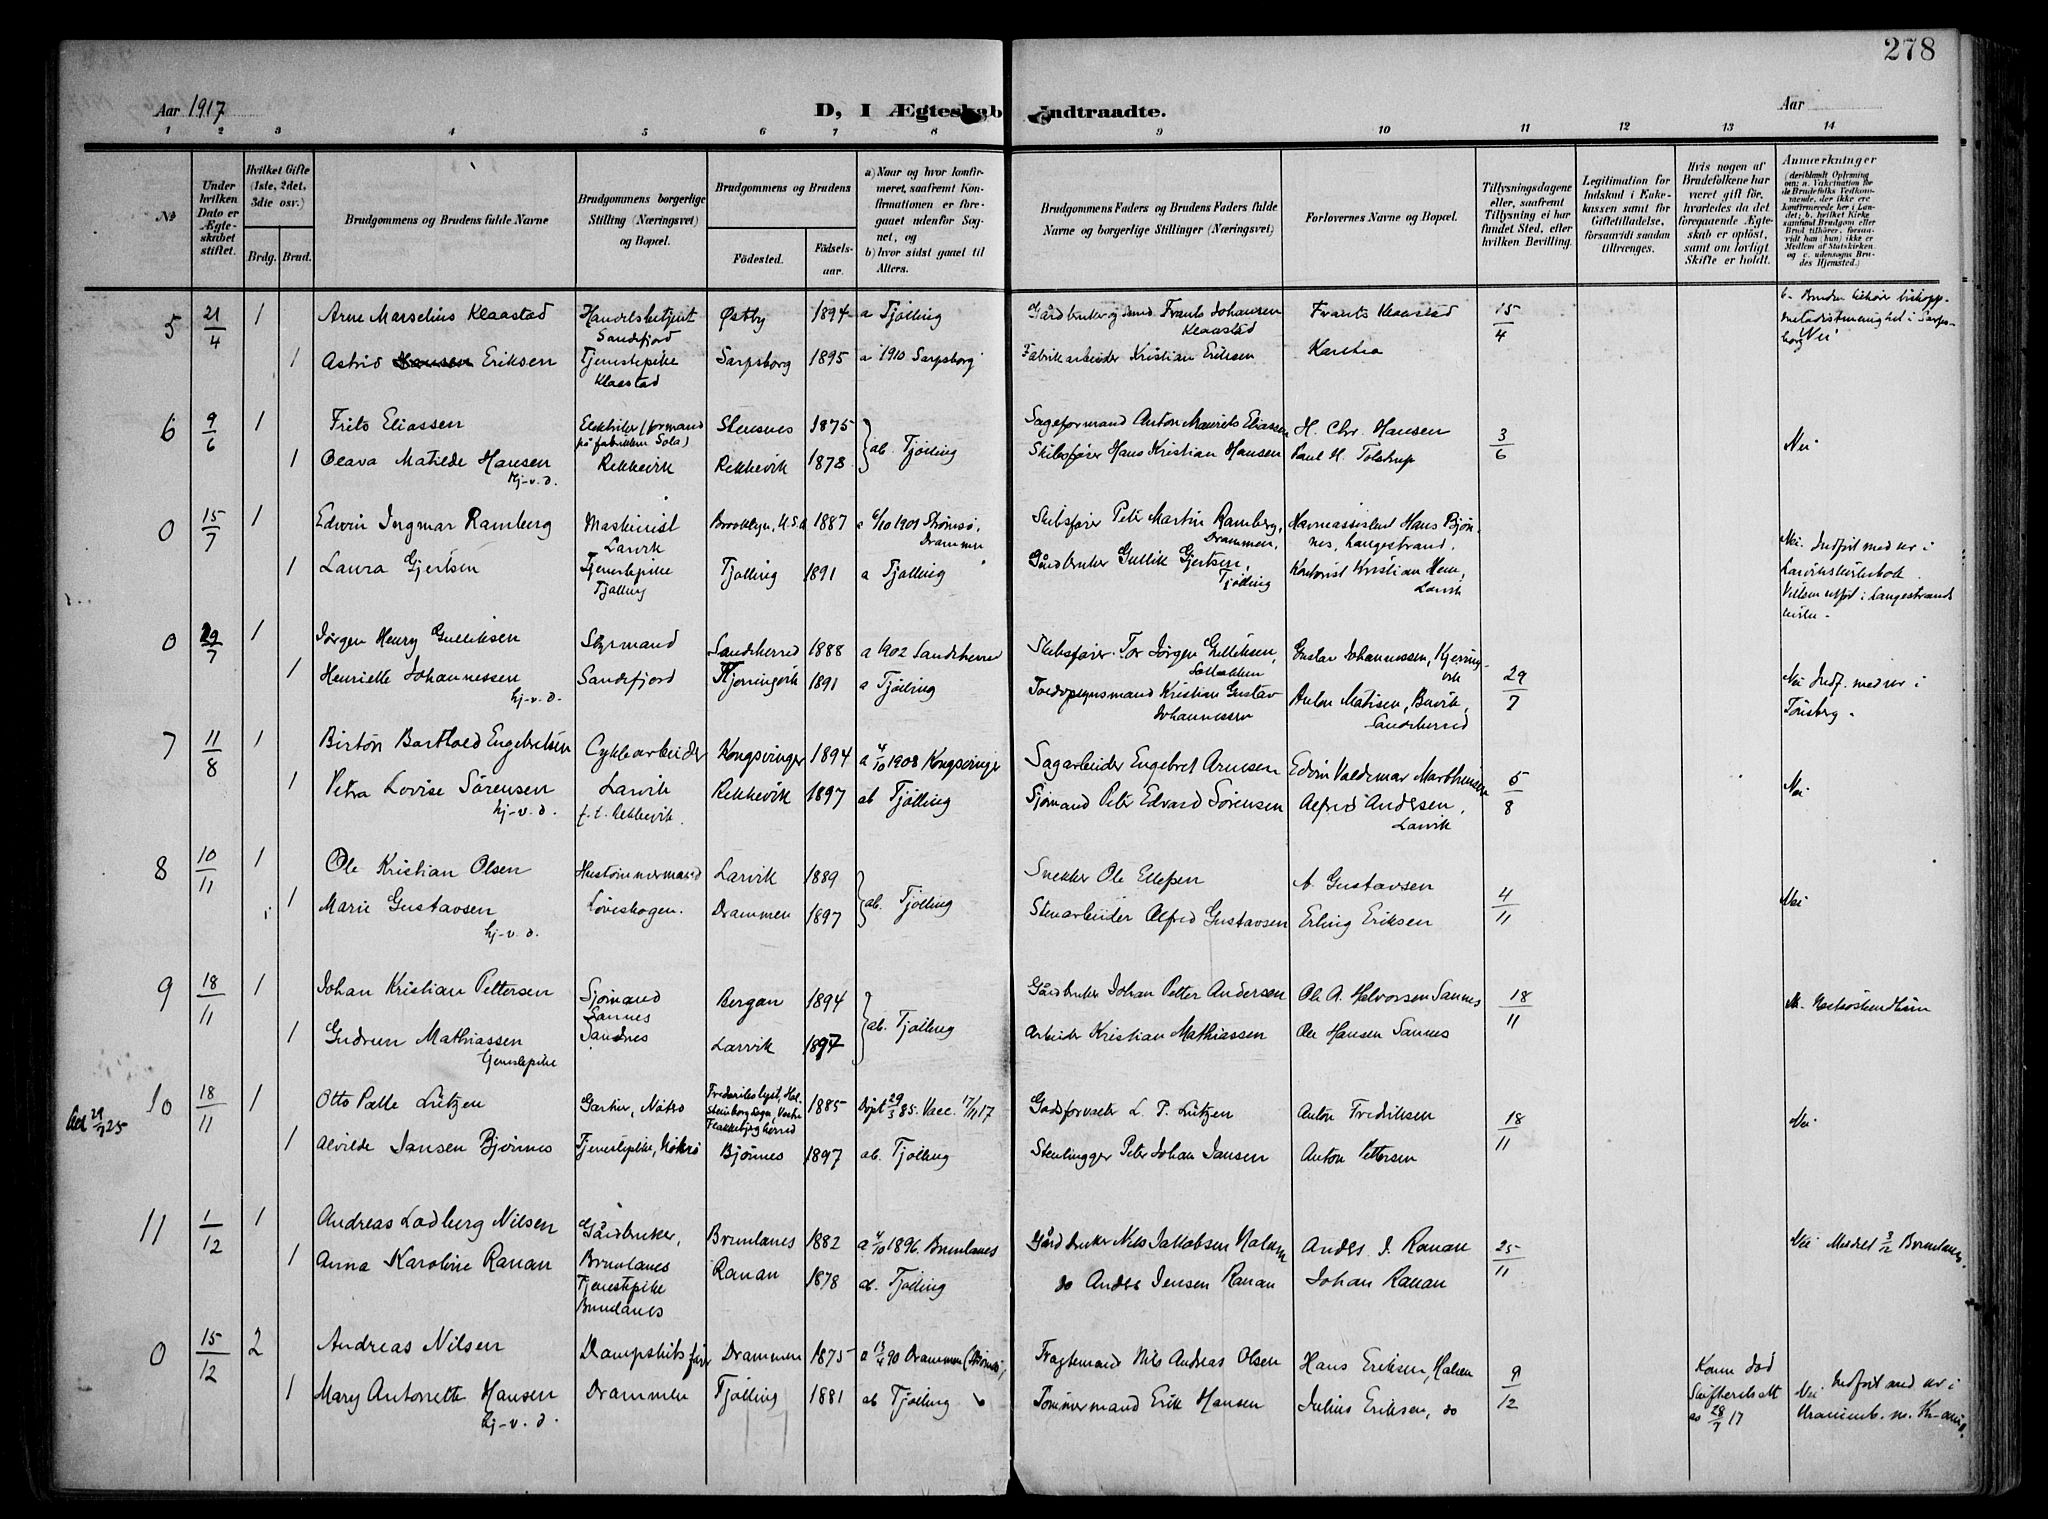 278
Aar 1917
D, I Ægteskab Indtraadte.
Aar
1 2 3 4 5 6 7 8 9 10 11 12 13 14
№
Under hvilken Dato er Ægteskabet stiftet.
Hvilket Gifte (1ste, 2det, 3die osv.)
Brdg. Brud.
Brudgommens og Brudens fulde Navne
Brudgommens borgerlige Stilling (Næringsvei) og Bopæl.
Brudgommens og Brudens
Fødested. Fødselsaar.
a) Naar og hvor konfirmeret, saafremt Konfirmationen er foregaaet udenfor Sognet, og
b) hvor sidst gaaet til Alters.
Brudgommens Faders og Brudens Faders fulde Navne og borgerlige Stillinger (Næringsvei)
Forlovernes Navne og Bopæl.
Tillysningsdagene eller, saafremt Tillysning ei har fundet Sted, efter hvilken Bevilling.
Legitimation for Indskud i Enkekassen samt for Giftetilladelse, forsaavidt saadan tiltrænges.
Hvis nogen af Brudefolkene har været gift før, hvorledes da det foregaaende Ægteskab er opløst, samt om lovligt Skifte er holdt.
Anmerkninger (deriblandt Oplysning om: a. Vakcination for de Brudefolks Vedkommende, der ikke ere konfirmerede her i Landet; b. hvilket Kirkesamfund Brudgom eller Brud tilhører, forsaavidt han (hun) ikke er Medlem af Statskirken og c. udensogns Brudes Hjemsted.)
5 21/4 1 Arne Marselius Klaastad Handelsbetjent Sandefjord Østby 1894 a Tjølling Gårdbruker Frants Johansen Klaastad Frants Klaastad 15/4 b. Bruden tilhører biskoppmetodistmenighet i Sarpsborg Nei
1 Astrid Eriksen Tjenestepike Klaastad Sarpsborg 1895 a 1910 Sarpsborg Fabrikarbeider Kristian Eriksen
6 9/6 1 Frits Eliassen (formand på fabrikken Sola) Stensnes 1875 ab. Tjølling Sageformand Anton Maurits Eliassen H. Chr. Hansen 3/6 Nei
1 Olava Matilde Hansen hj-v.d. Rekkevik Rekkevik 1878 Skibsfører Hans Kristian Hansen Paul H. Tolstrup
0 15/7 1 Edwin Ingmar Ramberg Maskinist Larvik Brooklyn, U.S.A 1887 a 6/10 1901 Strømsø, Drammen Skibsfører Peter Martin Ramberg, Drammen, Havneassistent Hans Bjønnes, Langestrand. Nei. Indført med nr i
1 Laura Gjertsen Tjenestepike Tjølling Tjølling 1891 a Tjølling Gårdbruker Gullik Gjertsen, Tjølling Kontorist Kristian Hem, Larvik
0 29/7 1 Jørgen Henry Gulliksen Styrmand Sandeherred 1888 a 1902 Sandeherred Skibsfører Tor Jørgen Gulliksen, Gustav Johannessen, Kjerringvik 29/7 Nei Indf. med nr i Tønsberg.
1 Henriette Johannessen hj-v.d. Sandefjord Kjerringvik 1891 a Tjølling Toldopsynsmand Kristian Gustav Johannessen Anton Matisen, Buvik, Sandeherred
7 11/8 1 Birton Barthold Engebretsen Cyklearbeider Kongsvinger 1894 a 4/10 1908 Kongsvinger Sagarbeider Engebret Arnesen Edvin Valdemar Marthinsen 5/8 Nei
1 Petra Lovise Sørensen hj-v.d. Larvik f.t. Rekkevik. Rekkevik 1897 ab Tjølling Sjømand Peter Edvard Sørensen Alfred Andersen, Larvik
8 10/11 1 Ole Kristian Olsen Hustømmermand Larvik 1889 ab. Tjølling Snekker Ole Ellefsen A. Gustavsen 4/11 Nei
1 Marie Gustavsen hj-v.d. Løveskogen. Drammen 1897 Stenarbeider Alfred Gustavsen Erling Eriksen
9 18/11 1 Johan Kristian Pettersen Sjømand Sannes Bergan 1894 ab. Tjølling Gårdbruker Johan Petter Andersen Ole A. Halvorsen Sannes 18/11
1 Gudrun Mathiassen Tjenestepike Sandnes Larvik 1897 Arbeider Kristian Mathiassen Ole Hansen Sannes
10 18/11 1 Otto Palle Lützen Gartner, Nøtrø 1885 Døpt 29/3 85. Vacc. 7/11 17 Godsforvalter L. P. Lützen Anton Fredriksen 18/11 Nei
1 Alvilde Jansen Bjønnes Tjenestepike, Bjønnes 1897 ab. Tjølling Stenlugger Peter Johan Jansen Anton Pettersen
11 1/12 1 Andreas Lodberg Nilsen Gårdbruker, Brunlanes Brunlanes 1882 a 4/10 1896 Brunlanes Gårdbruker Nils Jakobsen Anders J. Ranan 25/11 Nei Meldt 3/12 Brunlanes.
1 Anna Karoline Ranan Tjenestepike Brunlanes Ranan 1878 ab. Tjølling do Anders Jensen Ranan Johan Ranan
0 15/12 2 Andreas Nilsen Dampskibsfører Drammen 1875 a 13/4 90 Drammen (Strømsø) Fragtemand Nils Andreas Olsen Hans Eriksen, Halsen 9/12 Konen død Skifteattest do 28/7 17 Nei. Indført med nr i
1 Mary Antonette Hansen hj-v.d. Drammen Tjølling 1881 ab Tjølling Tømmermand Erik Hansen Julius Eriksen, do